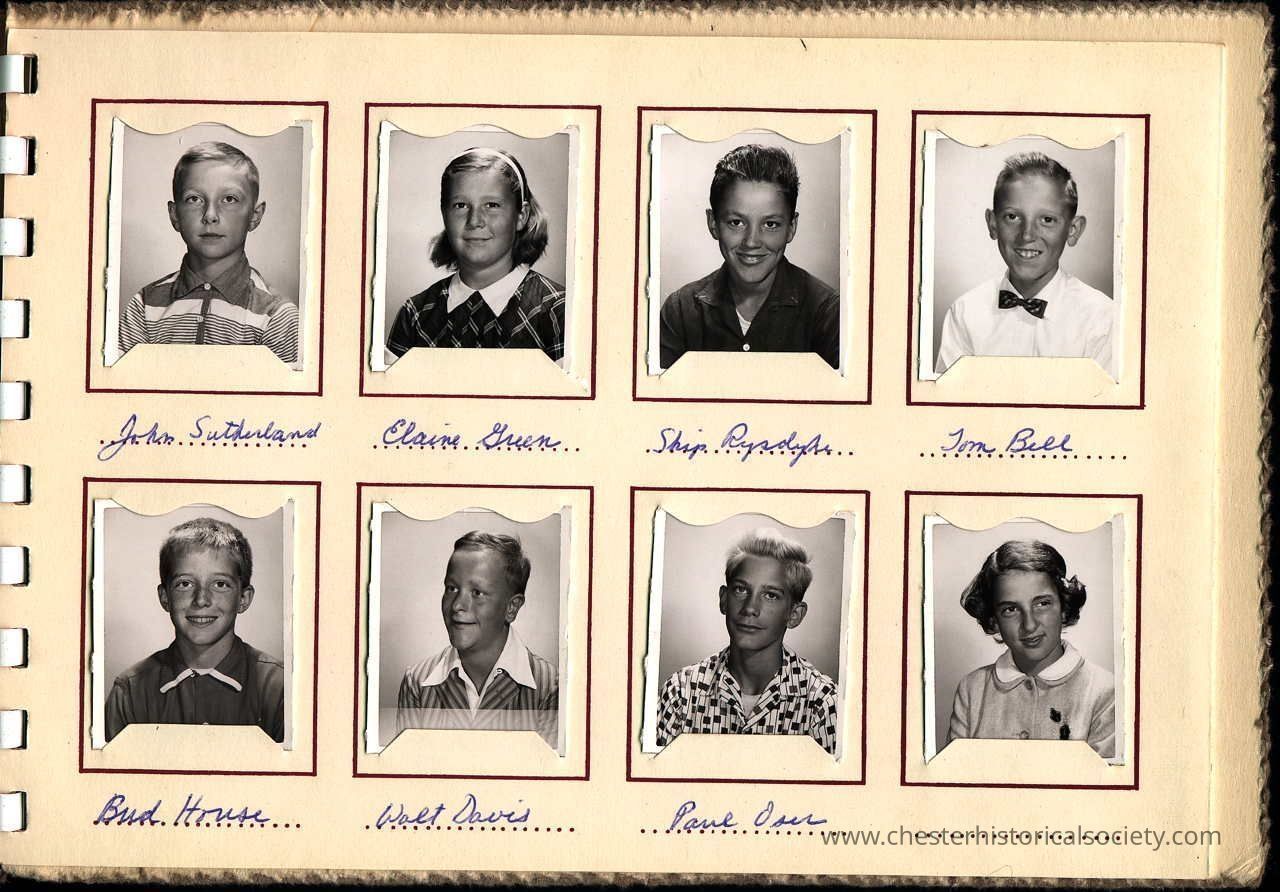 John Sutherland
Elaine Green
Skip Rysdyke
Tom Bell
Bud House
Walt Davis
Paul Oser
www.chesterhistoricalsociety.com